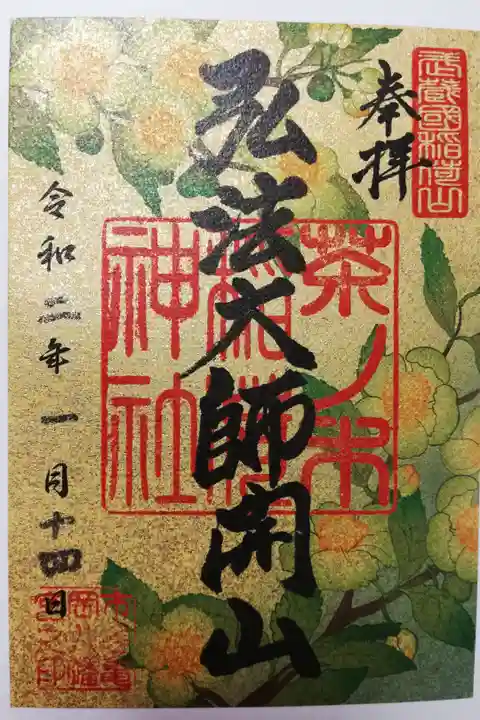 武蔵國稲荷山
奉拝
弘法大師開山
茶ノ木
稲荷
神社
令和二年一月十四日